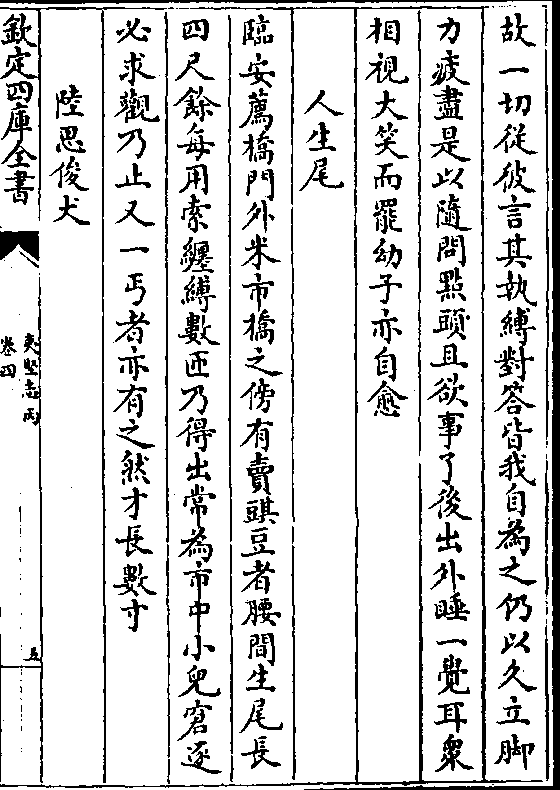 故一切從彼言其執縛對答皆我自為之仍以久立脚
力疲盡是以隨問點頭且欲事了後出外睡一覺耳衆
相視大笑而罷幼子亦自愈
人生尾
臨安薦橋門外米市橋之傍有賣䜴豆者腰間生尾長
四尺餘每用索纏縛數匝乃得出常為市中小兒窘逐
必求觀乃止又一丐者亦有之然才長數寸
陸思俊犬
欽定四庫全書
夷堅志丙
卷四
五